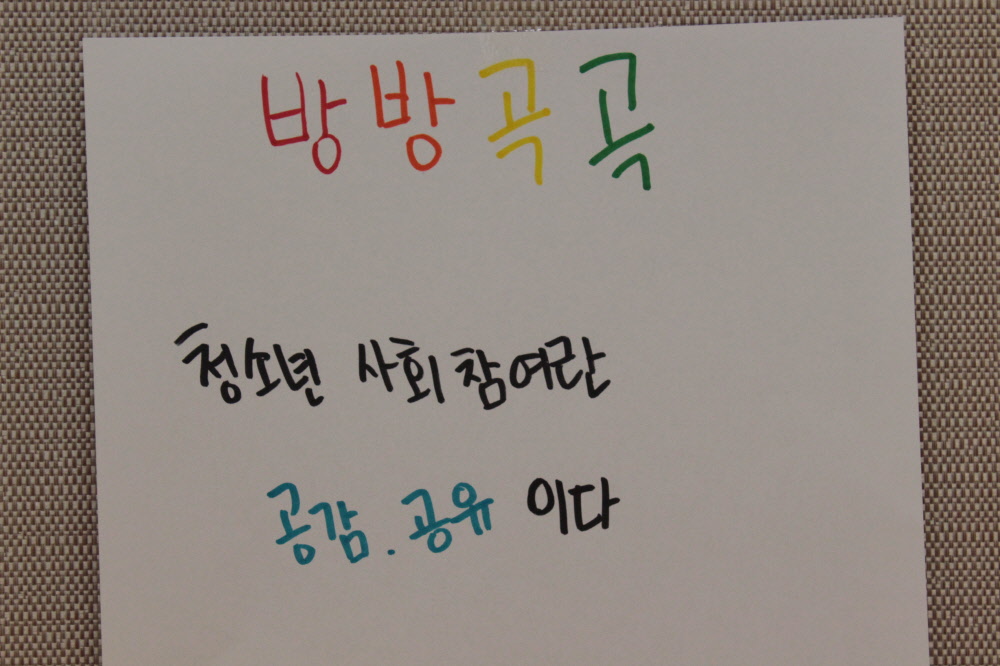 방방곡곡
청소년 사회참여란
공감.공유 이다